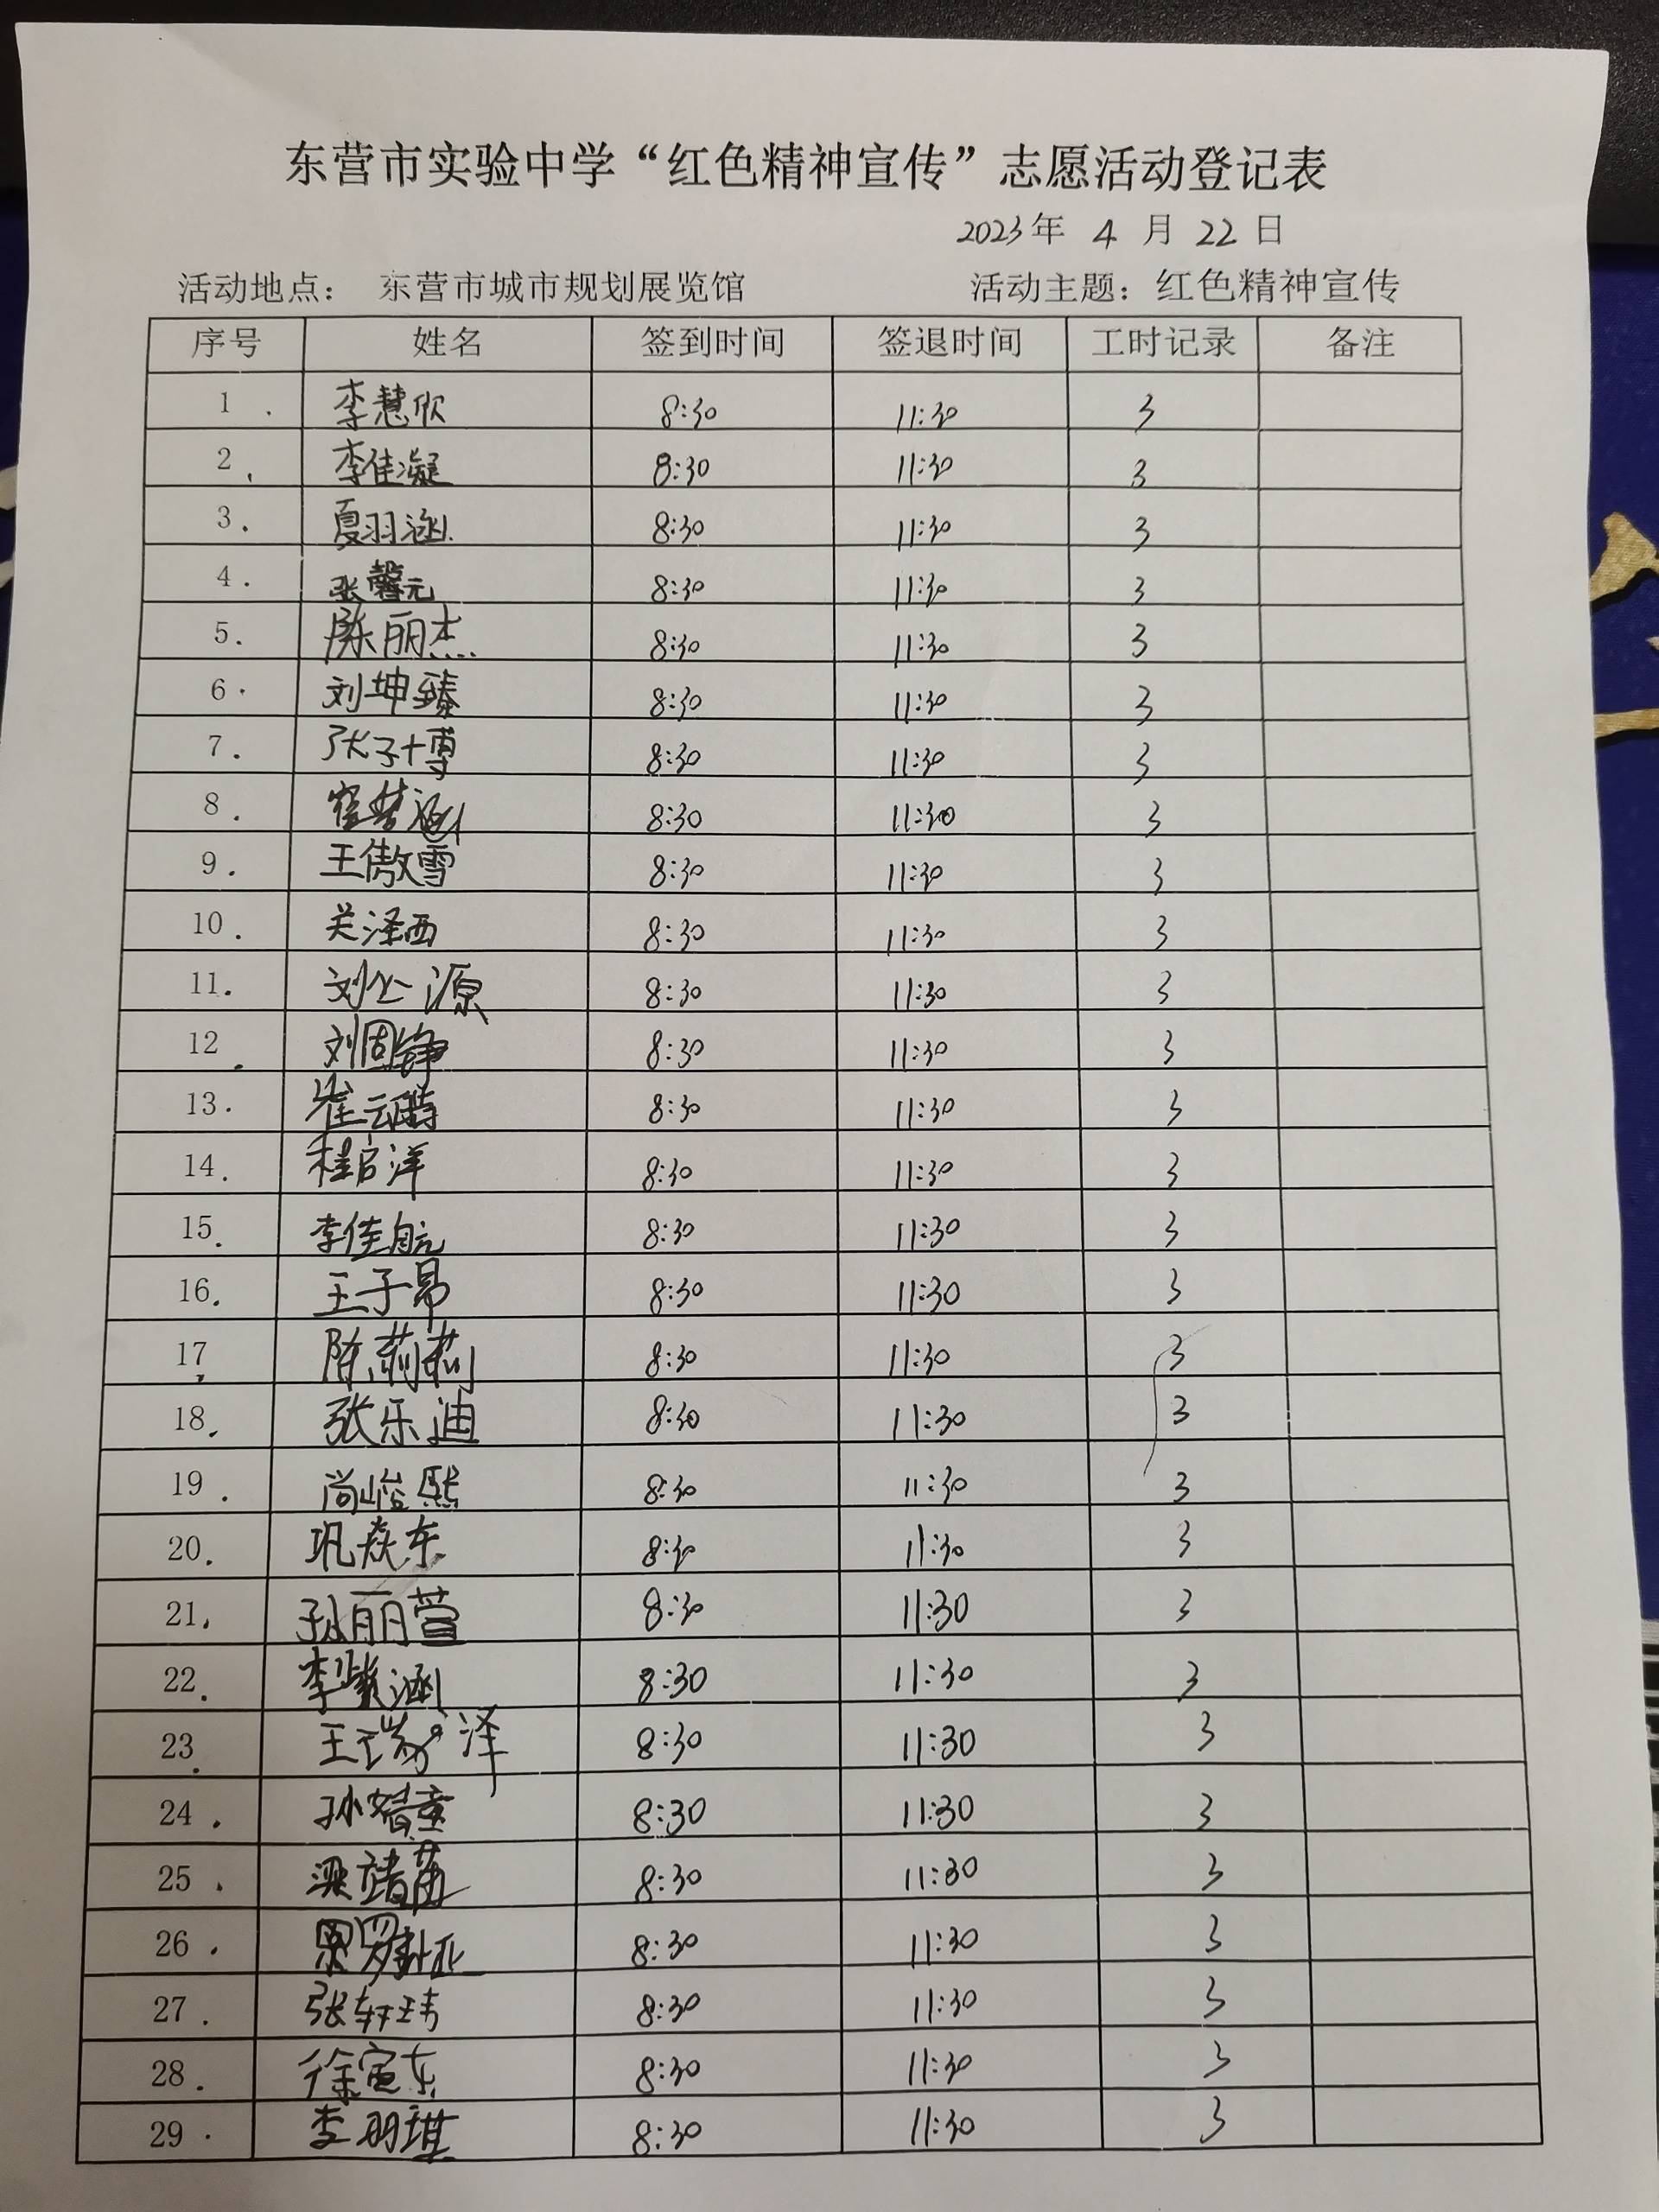 东营市实验中学“红色精神宣传”志愿活动登记表
2023年 4 月 22 日
活动地点： 东营市城市规划展览馆 活动主题：红色精神宣传
序号 姓名 签到时间 签退时间 工时记录 备注
1. 李慧欣 8:30 11:30 3
2. 李佳凝 8:30 11:30 3
3. 夏羽涵 8:30 11:30 3
4. 张馨元 8:30 11:30 3
5. 陈丽杰 8:30 11:30 3
6. 刘坤臻 8:30 11:30 3
7. 张子博 8:30 11:30 3
8. 8:30 11:30 3
9. 王傲雪 8:30 11:30 3
10. 关泽西 8:30 11:30 3
11. 刘公源 8:30 11:30 3
12. 刘固铮 8:30 11:30 3
13. 崔云 8:30 11:30 3
14. 程启洋 8:30 11:30 3
15. 李佳航 8:30 11:30 3
16. 王子昂 8:30 11:30 3
17. 陈莉莉 8:30 11:30 3
18. 张乐迪 8:30 11:30 3
19. 尚峻熙 8:30 11:30 3
20. 巩焱东 8:30 11:30 3
21. 孙丽萱 8:30 11:30 3
22. 李紫涵 8:30 11:30 3
23. 王瑞泽 8:30 11:30 3
24. 孙婧童 8:30 11:30 3
25. 梁 8:30 11:30 3
26. 8:30 11:30 3
27. 张轩玮 8:30 11:30 3
28. 徐寅东 8:30 11:30 3
29. 李明琪 8:30 11:30 3